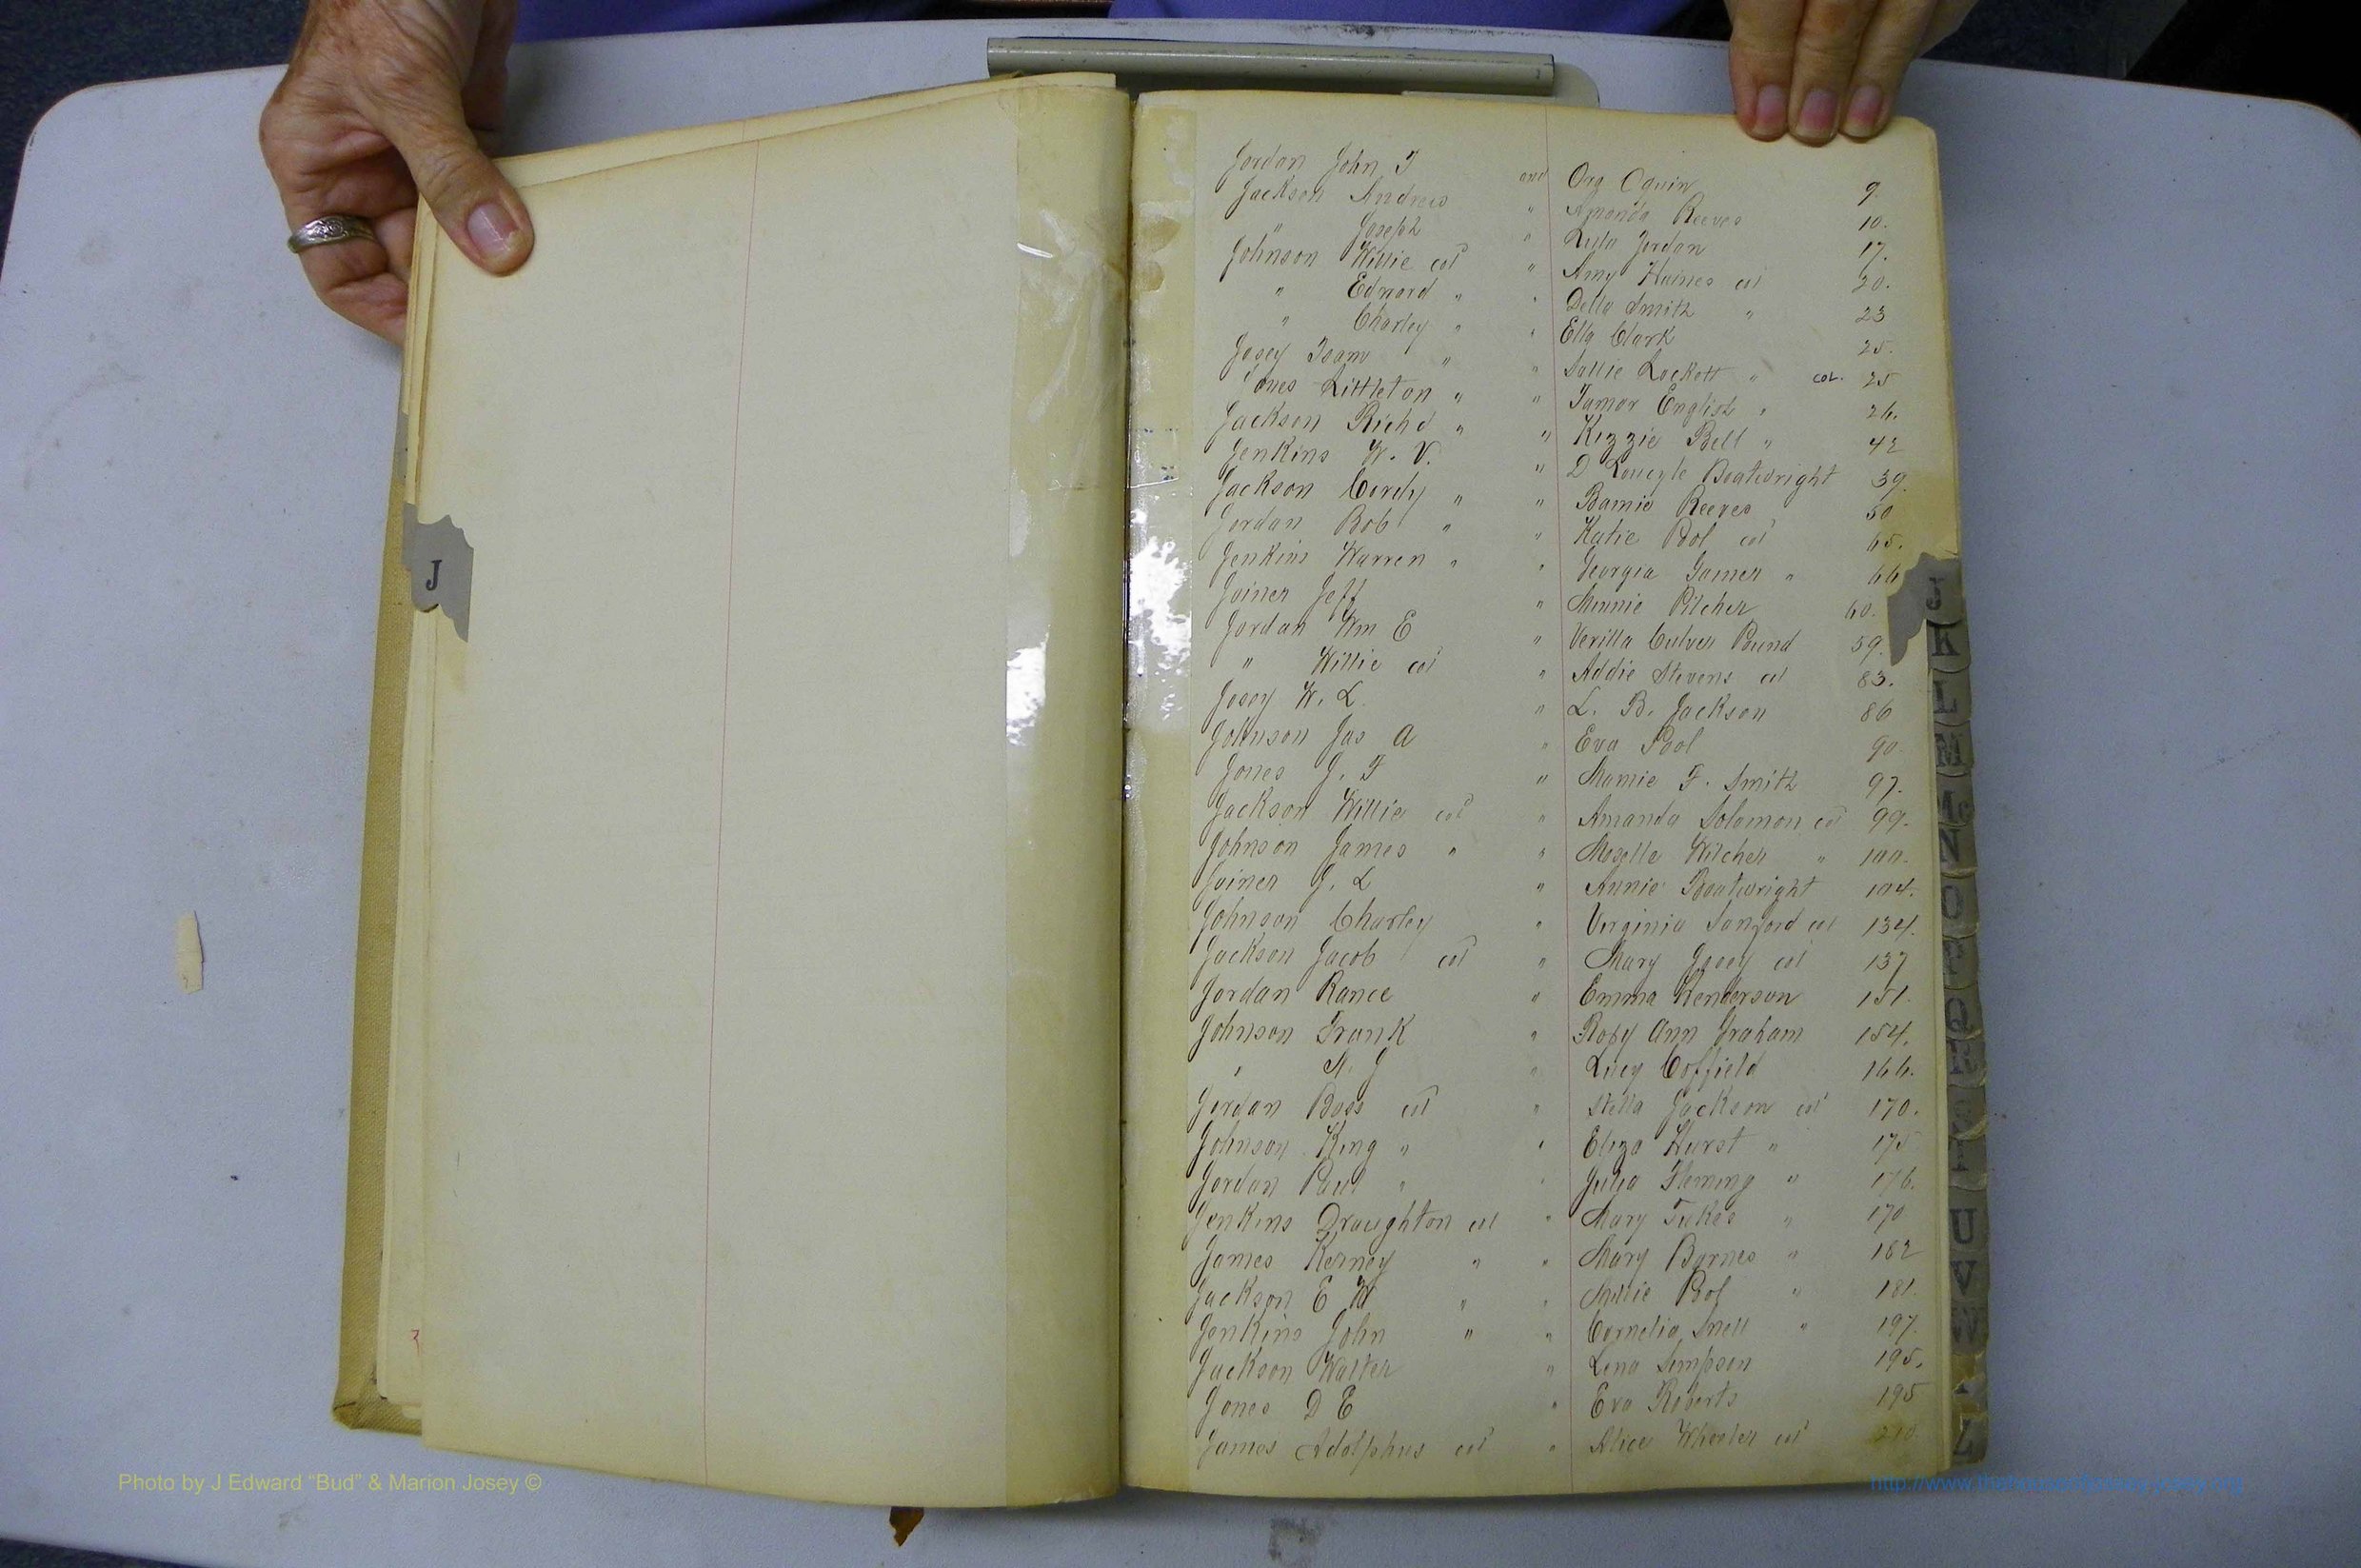 J
Jordan John T and Ora Odum 9.
Jackson Andrew " Amanda Reeves 10.
" Joseph " Lula Jordan 17.
Johnson Willie col " Amy Haines col 20.
" Edward " " Della Smith " 23
" Charley " " Ella Clark 25.
Josey Isam " " Sallie Lockett " col. 25
Jones Littleton " " Tamar English " 26.
Jackson Richd " " Kizzie Bell " 42
Jenkins W. V. " D Boatwright 39.
Jackson Cordy " " Bamie Reeves 50
Jordan Bob " " Katie Pool col 65.
Jenkins Warren " " Georgia " 66
Joiner Jeff " Minnie Pilcher 60.
Jordan Wm E " Verilla Culver Pound 59.
" Willie col " Addie Stevens col 83.
Josey W. L. " L. B. Jackson 86
Johnson Jas A " Eva Pool 90.
Jones J. T " Mamie F. Smith 97.
Jackson Willie col " Amanda Solomon col 99.
Johnson James " " Mozelle Wilcher " 100.
Joiner J. L " Annie Boatwright 104.
Johnson Charley " Virginia Sanford col 134.
Jackson Jacob col " Mary Josey col 137
Jordan Rance " Emma Henderson 151.
Johnson Frank " Roby Ann Graham 154.
" A. J " Lucy Coffield 166.
Jordan Boss col " Stella Jackson col 170.
Johnson King " " Eliza Hurst " 175
Jordan Paul " " Julia Fleming " 176.
Jenkins Draughton col " Mary " 170
James Kerney " " Mary Barnes " 162
Jackson E W " " Millie Pool " 181.
Jenkins John " " Cornelia Snell " 197.
Jackson Walter " Lena Simpson 195.
Jones D E " Eva Roberts 195
James Adolphus col " Alice Wheeler col 210.
J
K
L
M
N
O
P
Q
R
U
V
W
Z
Photo by J Edward “Bud” & Marion Josey ©